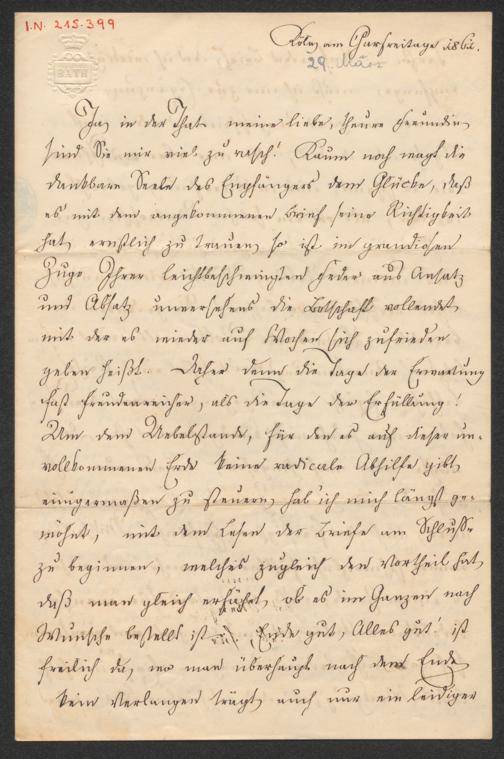 I.N. 215.399
BATH
Köln, am Charfreitage 1861.
29. März
Ja, in der That meine liebe, theure Freundin,
sind Sie mir viel zu rasch! Kaum noch wagt die
dankbare Seele des Empfängers dem Glücke, daß
es mit dem angekommenen Brief seine Richtigkeit
hat, ernstlich zu trauen, so ist im grandiosen
Zuge Ihrer leichtbeschwingten Feder aus Ansatz
und Absatz unversehens die Botschaft vollendet,
mit der es wieder auf Wochen sich zufrieden
geben heißt. Daher denn die Tage der Erwartung
fast freudenreicher, als die Tage der Erfüllung!
Um dem Uebelstande, für den es auf dieser un-
vollkommenen Erde keine radicale Abhilfe gibt,
einigermaßen zu steuern, hab' ich mich längst ge-
wöhnt, mit dem Lesen der Briefe am Schlusse
zu beginnen, welches zugleich den Vortheil hat,
daß man gleich erfährt, ob es im Ganzen nach
Wunsche bestellt ist. Ende gut, Alles gut! ist
freilich da, wo man überhaupt nach dem Ende
kein Verlangen trägt, auch nur ein leidiger